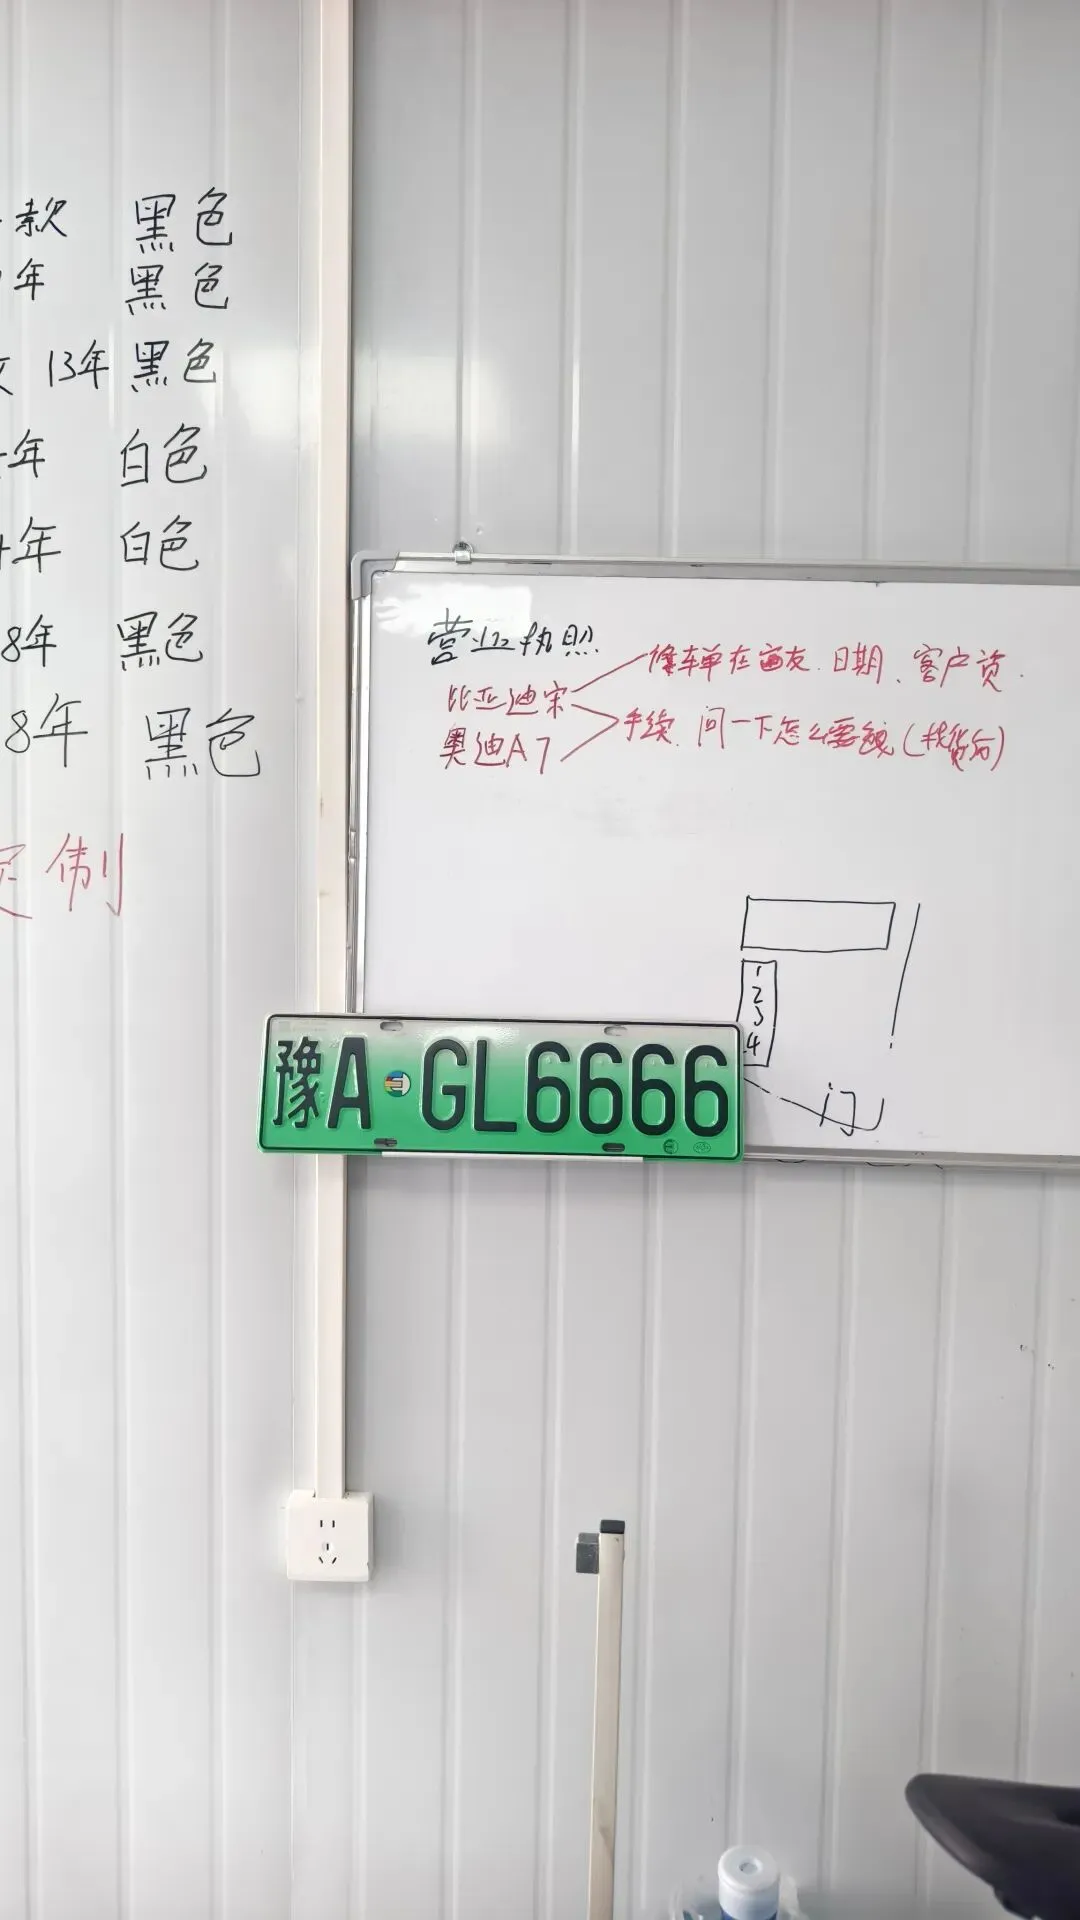 款 黑色
年 黑色
13年 黑色
年 白色
年 白色
8年 黑色
8年 黑色
定制
营业执照
比亚迪宋
奥迪A7
修车单在 日期、客户资
手续、问一下怎么要钱(找货
1
2
3
4
门
豫A·GL6666